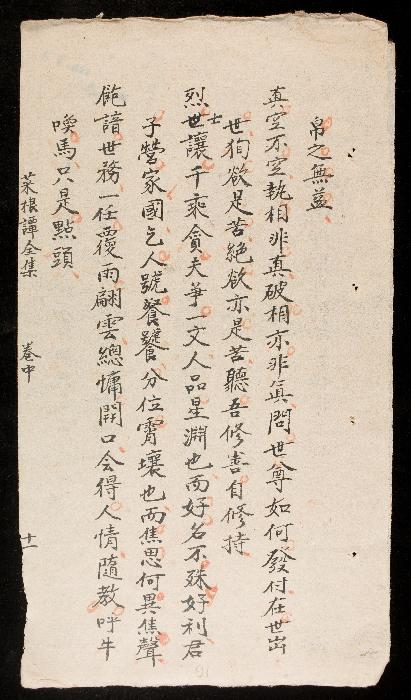 帛之無益
真空不空執相非真破相亦非真問世尊如何發付在世出
世狥欲是苦絕欲亦是苦聽吾修善自修持
烈士世讓千乘貪夫爭一文人品星淵也而好名不殊好利君
子營家國乞人號分位霄壤也而焦思何異焦聲
飽諳世務一任覆雨翻雲總慵開口会得人情隨教呼牛
喚馬只是點頭
菜根譚全集 卷中 十一